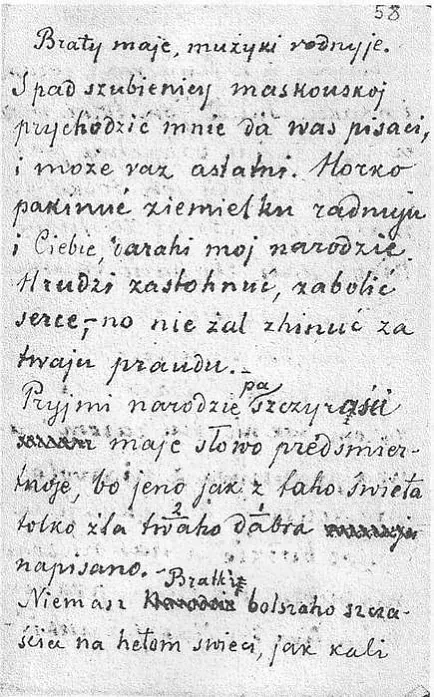 58
Braty maje, mużyki rodnyje.
S pad szubienicy maskouskoj
prychodzić mnie da was pisaci,
i może raz astatni. Horko
pakinuć ziemielku radnuju
i Ciebie, darahi moj narodzie.
Hrudzi zastohnuć, zabolić
serce,- no nie żal zhinuć za
twaju praudu.-
Pryjmi narodzie pa szczyraści
maje słowo predśmier-
tnoje, bo jeno jak z taho świeta
tolko dla twaho dabra
napisano.-
Niemasz Bratkie bolszaho szcza-
ścia na hetom świeci, jak kali